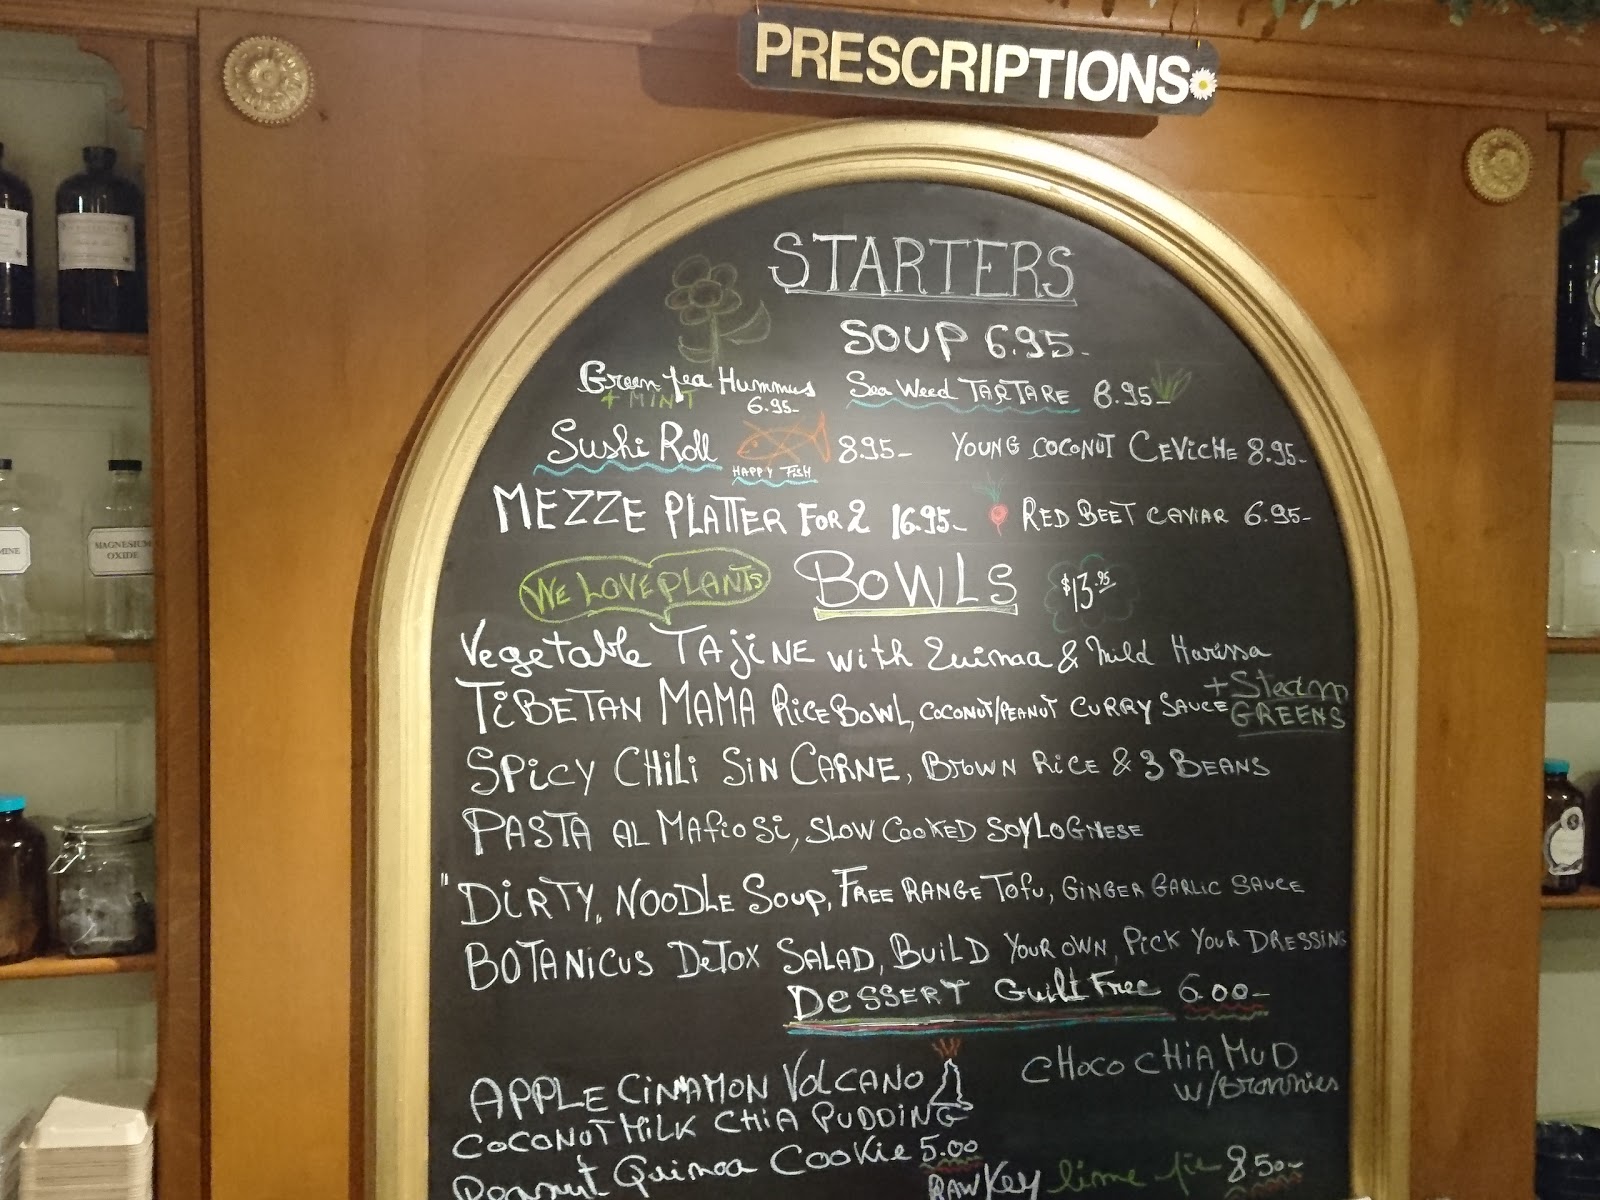 PRESCRIPTIONS
STARTERS
SOUP 6.95-
Green pea Hummus
+ MINT 6.95-
Sea Weed TARTARE 8.95-
Sushi Roll 8.95-
HAPPY FISH
YOUNG COCONUT CEVICHE 8.95-
MEZZE PLATTER FOR 2 16.95-
RED BEET CAVIAR 6.95-
WE LOVE PLANTS
BOWLS $13.95
Vegetable TAJINE with Quinoa & Mild Harissa
TIBETAN MAMA RICE BOWL, COCONUT/PEANUT CURRY SAUCE + Steam
GREENS
SPICY CHILI SIN CARNE, BROWN RICE & 3 BEANS
PASTA AL MAFIOSI, SLOW COOKED SOYLOGNESE
"DIRTY" NOODLE SOUP, FREE RANGE TOFU, GINGER GARLIC SAUCE
BOTANICUS DETOX SALAD, BUILD YOUR OWN, PICK YOUR DRESSING
DESSERT Guilt Free 6.00-
APPLE CINNAMON VOLCANO
CHOCO CHIA MUD
W/Brownies
COCONUT MILK CHIA PUDDING
Peanut Quinoa COOKIE 5.00
RAW KEY lime pie 8.50-
MAGNESIUM
OXIDE
MINE